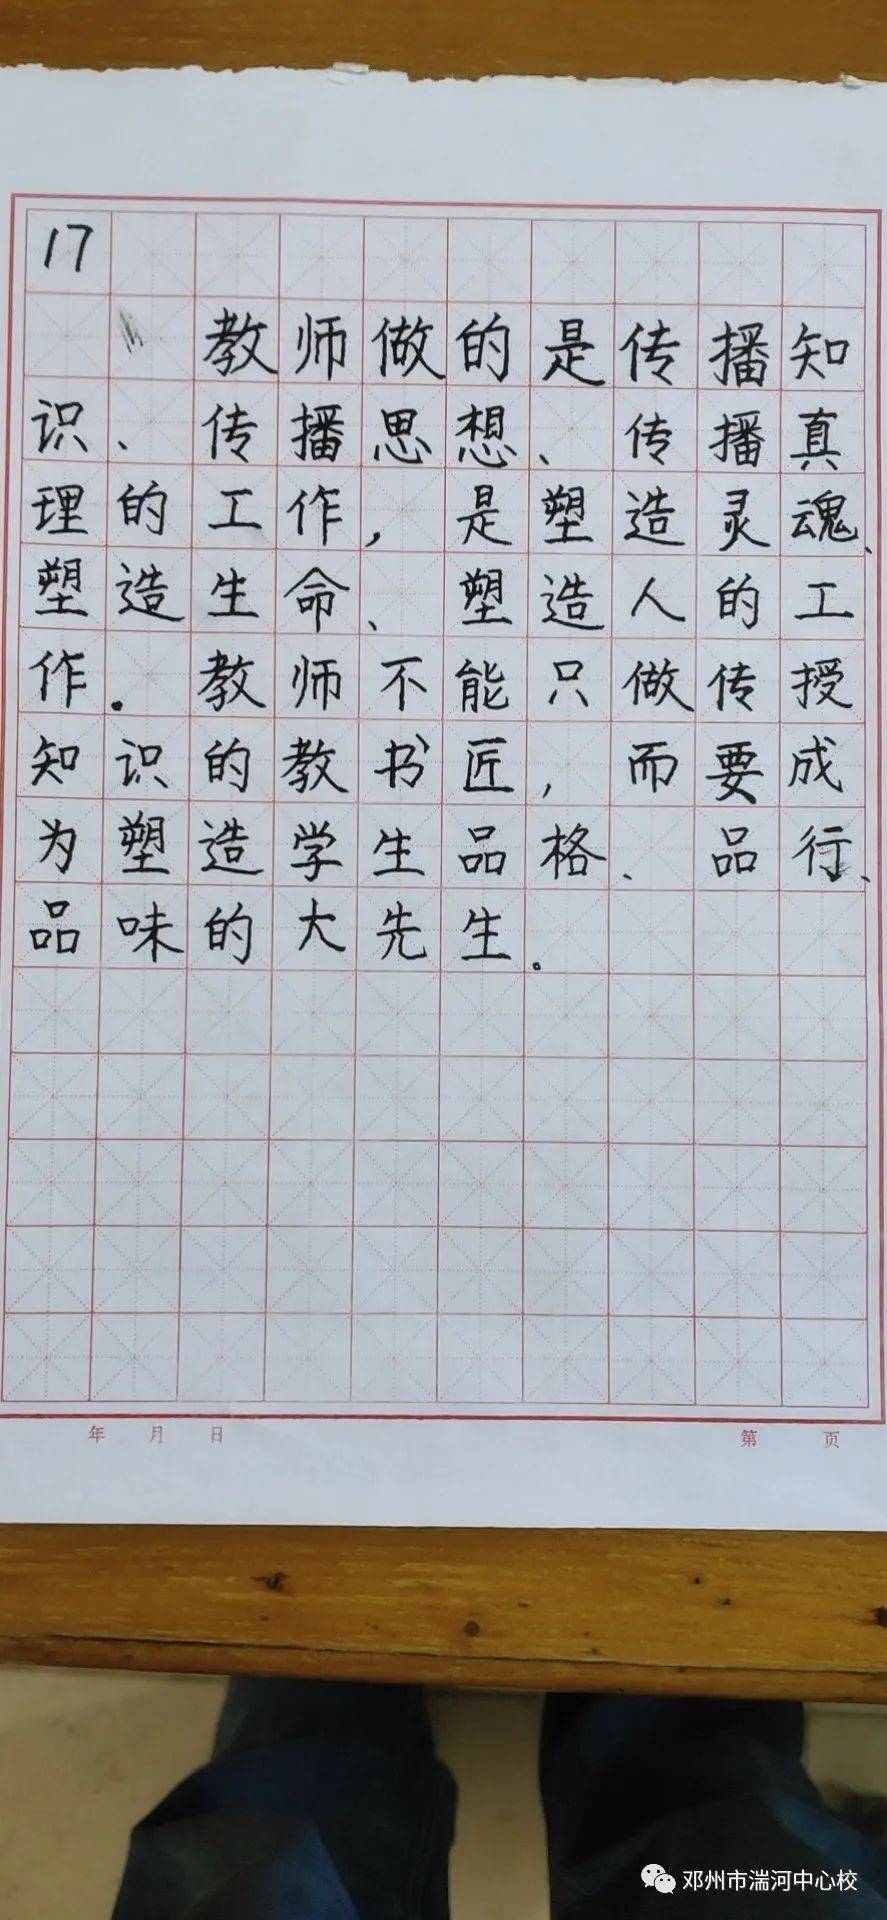 17
教师做的是传播知
识、传播思想、传播真
理的工作,是塑造灵魂、
塑造生命、塑造人的工
作。教师不能只做传授
知识的教书匠,而要成
为塑造学生品格、品行、
品味的大先生。
年 月 日 第 页
邓州市湍河中心校